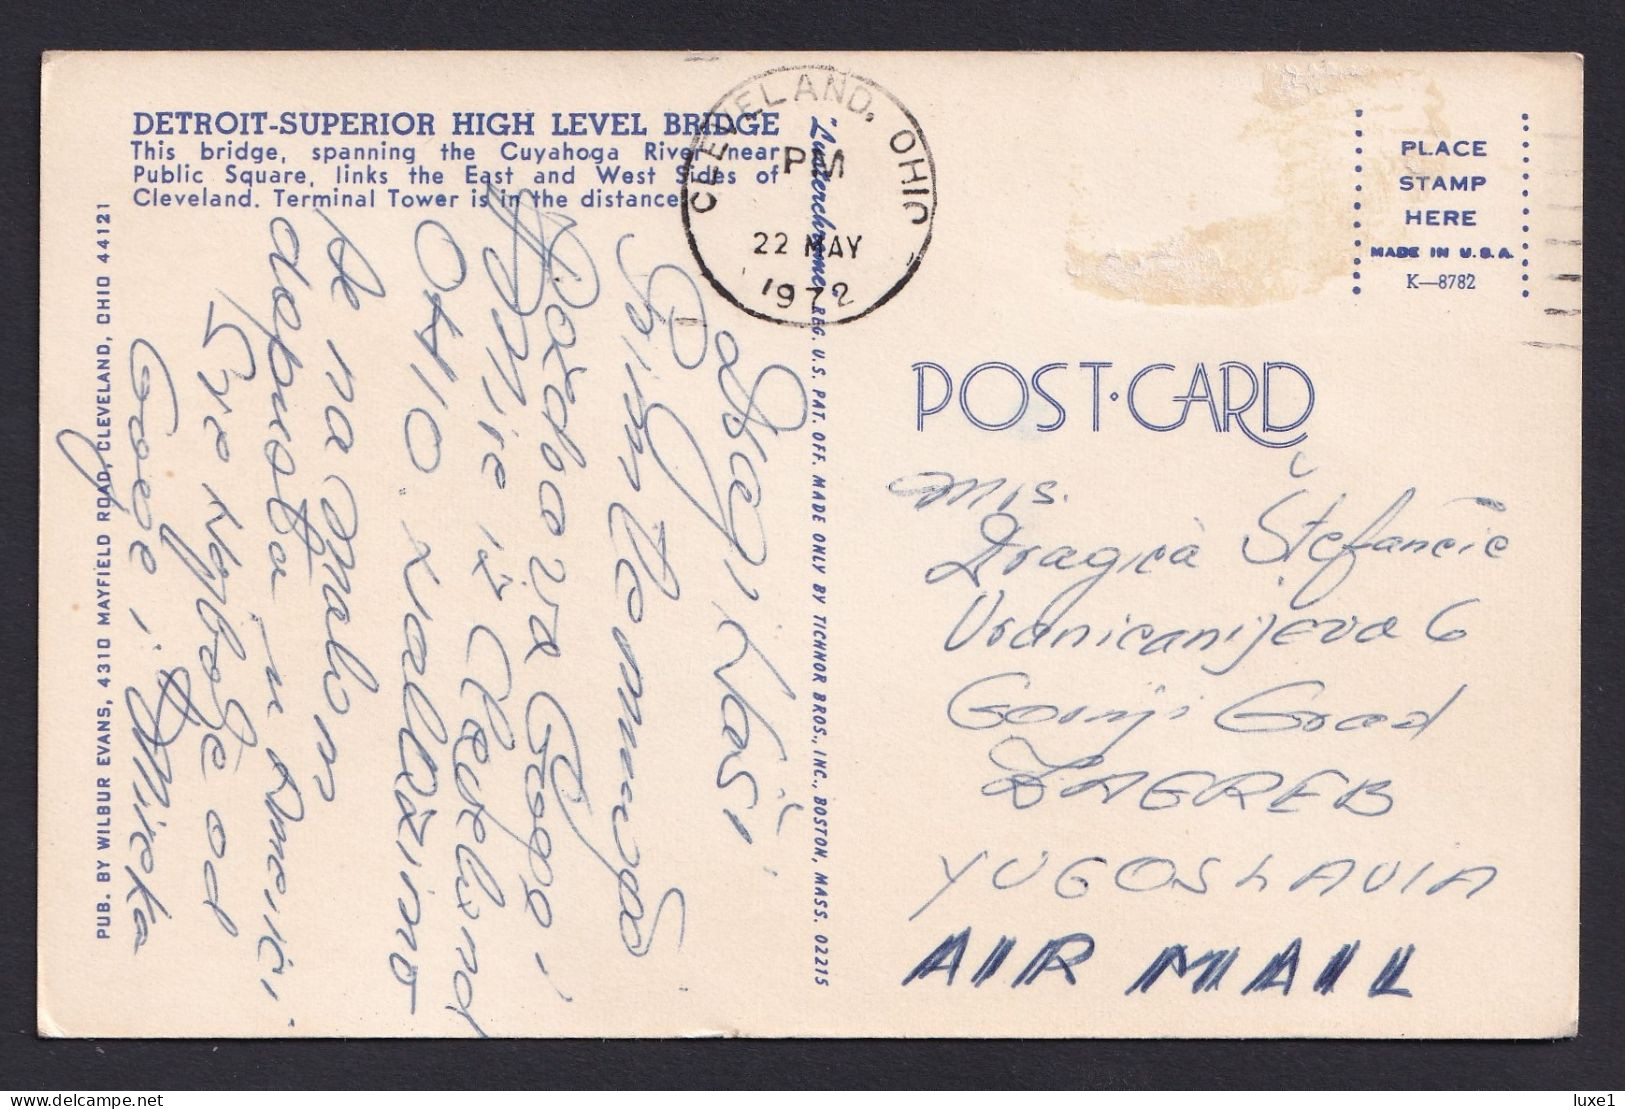 DETROIT-SUPERIOR HIGH LEVEL BRIDGE
This bridge, spanning the Cuyahoga River near
Public Square, links the East and West Sides of
Cleveland. Terminal Tower is in the distance.
PUB. BY WILBUR EVANS, 4310 MAYFIELD ROAD, CLEVELAND, OHIO 44121
Dragi Naši,
Šaljemo
i
Mie iz Cleveland
OHIO. nalazimo
se na malom
dopustu u Americi
Sve najbolje od
Gjoce i Mirka
"Lusterchrome" REG. U.S. PAT. OFF. MADE ONLY BY TICHNOR BROS., INC., BOSTON, MASS. 02215
CLEVELAND, OHIO
PM
22 MAY
1972
PLACE
STAMP
HERE
MADE IN U.S.A.
K—8782
POST·CARD
Mrs.
Dragica Štefančić
Vranicanijeva 6
Gornji Grad
ZAGREB
YUGOSLAVIA
AIR MAIL
luxe1